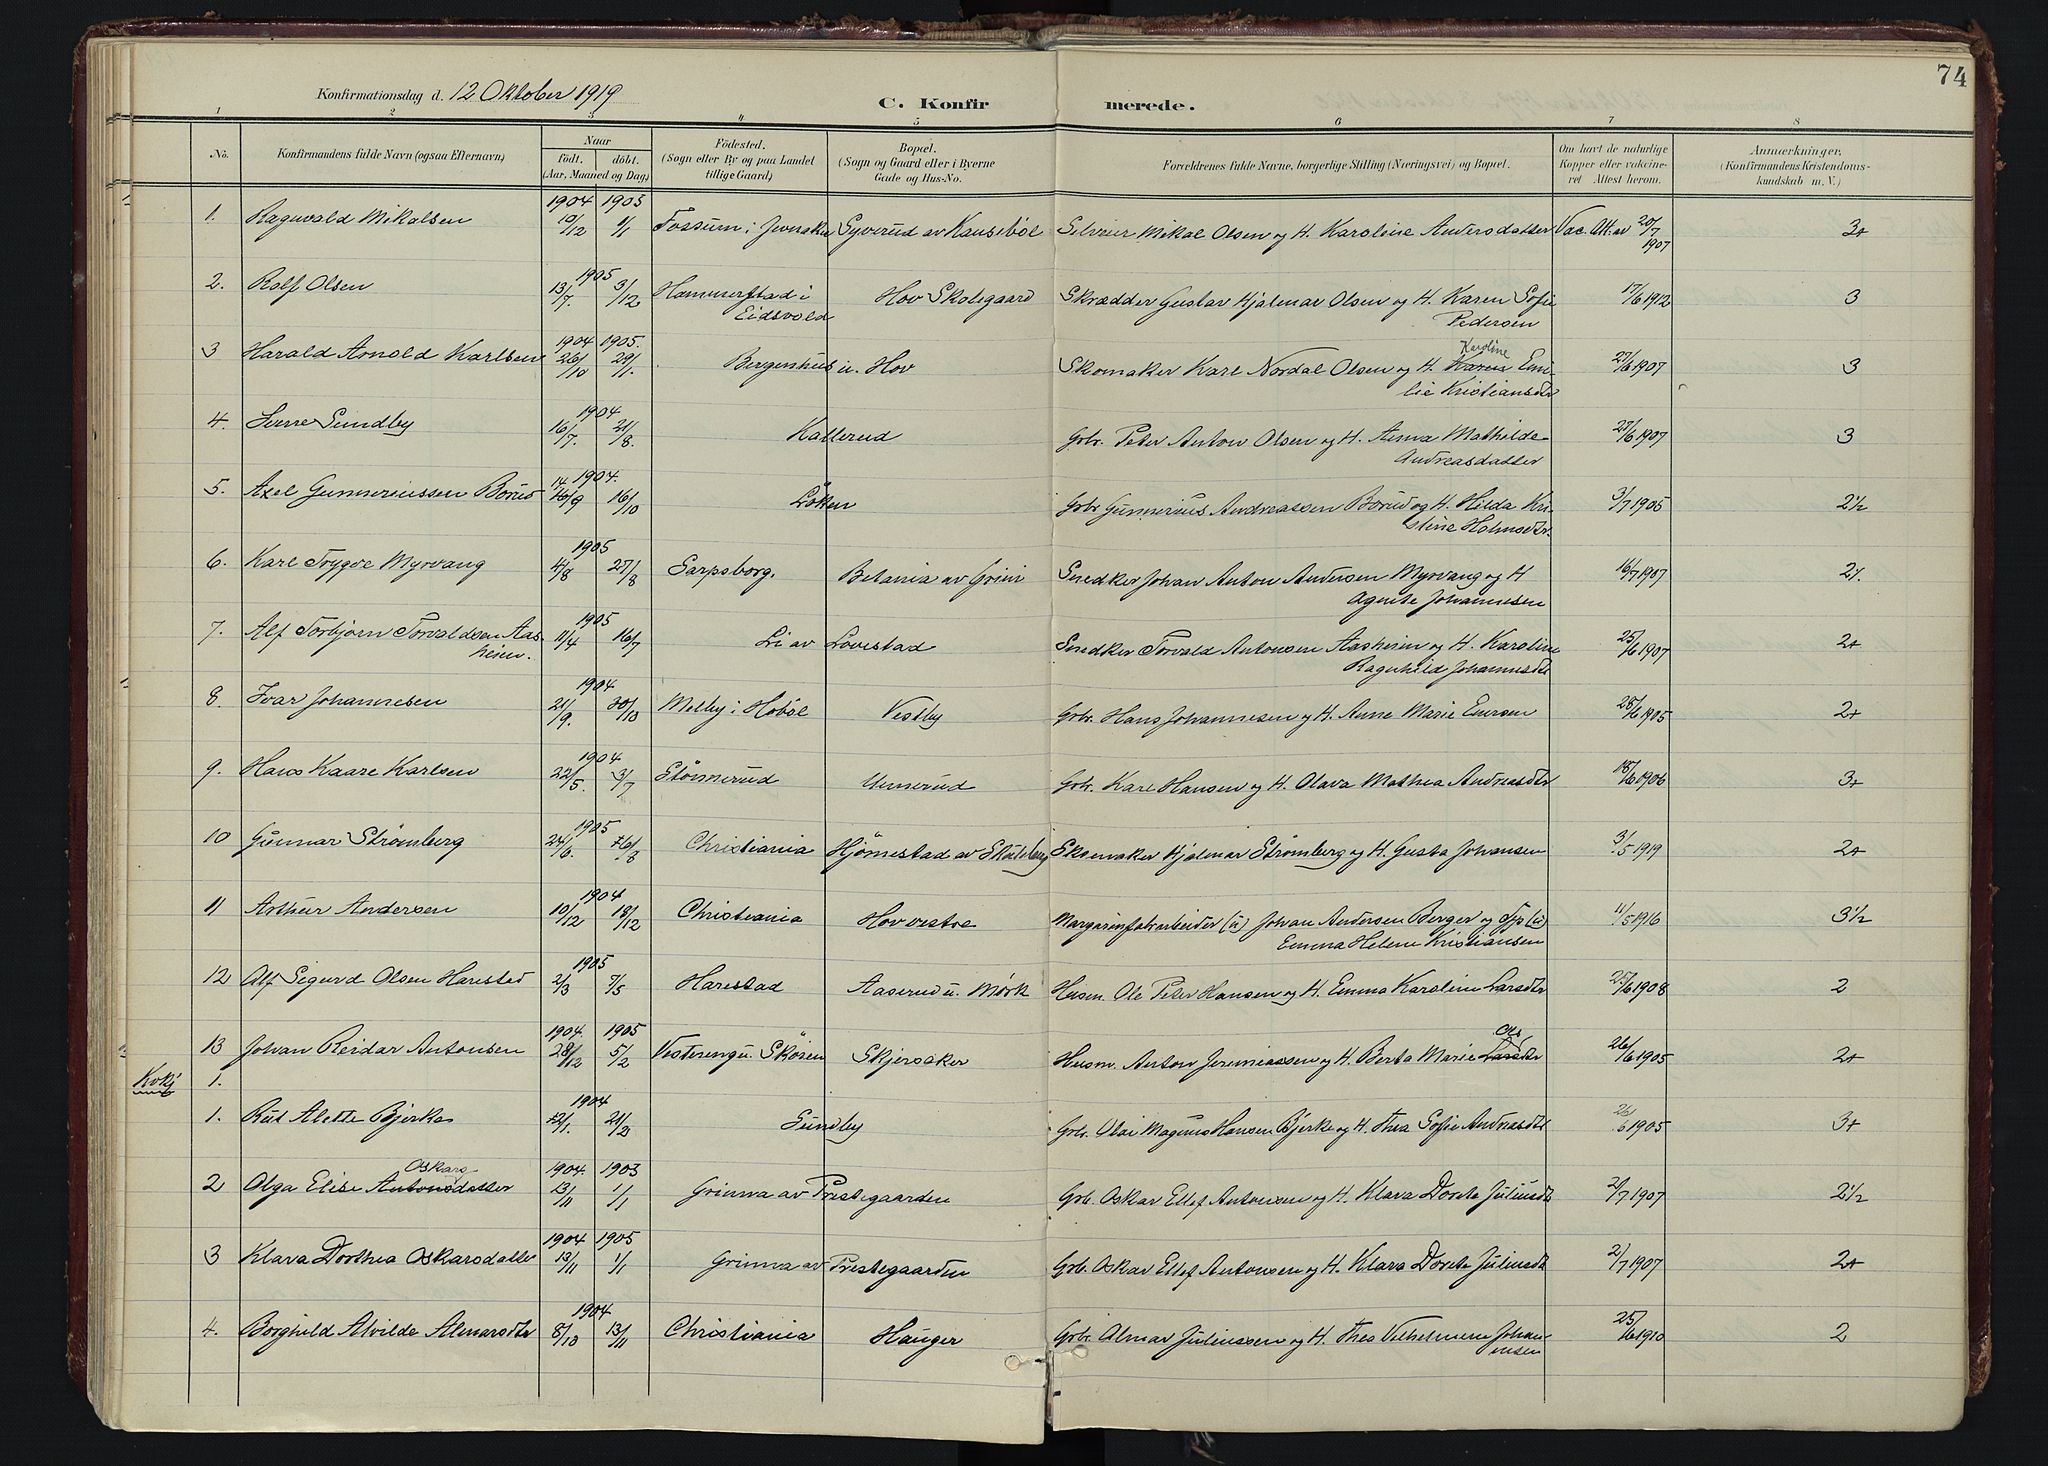 74
Konfirmationsdag d. 12 Oktober 1919
C. Konfirmerede.
1 2 3 4 5 6 7 8
No. Konfirmandens fulde Navn (ogsaa Efternavn) Naar født. døbt. (Aar, Maaned og Dag) Födested. (Sogn eller By og paa Landet tillige Gaard) Bopæl. (Sogn og Gaard eller i Byerne Gade og Hus-No. Forældrenes fulde Navne, borgerlige Stilling (Næringsvei) og Bopæl. Om havt de naturlige Kopper eller vakcineret Attest herom. Anmærkninger, (Konfirmandens Kristendomskundskab m. V.)
1904 1905
1. Ragnvald Mikalsen 19/12 1/1 Fossum i Jevnaker Syverud av Kausebøl Mikal Olsen og H. Karoline Andersdatter Vac. Att. av 20/7 1907 3+
1905
2. Rolf Olsen 13/7. 3/12 Hammerstad i Eidsvold Hov Skolegaard Skrædder Gustav Hjalmar Olsen og H. Karen Sofie Pedersen 17/6 1912 3
1904 1905.
3 Harald Arnold Karlsen 26/10 29/1. Bergenhus u. Hov Skomaker Karl Nordal Olsen og H. Karen Karoline Emilie Kristiansdtr 27/6 1907 3
1904
4. Sverre Sundby 16/7. 21/8. Kallerud Gbr. Peter Anton Olsen og H. Anna Mathilde Andreasdatter 27/6 1907 3
14 1904.
5. Axel Gunneriussen Borud 16/9 16/10 Løken Gbr Gunnerius Andreassen Borud og H. Hilda Kristine Holmsdtr. 3/7 1905 2½
1905
6. Karl Trygve Myrvang 4/8 27/8 Sarpsborg. Betania av Grini Snedker Johan Anton Andersen Myrvang og H Agnete Johannesen 16/7 1907 2½
1905
7. Alf Torbjørn Torvaldsen Aasheim. 11/4 16/7 Li av Lovestad Snedker Torvald Antonsen Aasheim og H. Karoline Ragnhild Johannesdtr 25/6 1907 2+
1904
8. Ivar Johannesen 21/9. 30/10 Melby i Hobøl Vestby Gbr. Hans Johannesen og H. Anne Marie Emersen 28/6 1905 2+
1904
9. Hans Kaare Karlsen 22/5. 3/7 Strømerud Unnerud Gbr. Karl Hansen og H. Olava Mathea Andreasdtr 18/6 1906 3+
1905
10 Gunnar Strømberg 24/6. 16/8 Christiania Hjørnestad av Skulsberg Skomaker Hjalmar Strømberg og H. Gusta Johansen 3/5 1919 2+
1904
11 Arthur Andersen 10/12 18/12 Christiania Hov vestre Margarinfabrarbeider (u) Johan Andersen Berger og Tjp (u) Emma Helene Kristiansen 11/5 1916 3½
1905
12 Alf Sigurd Olsen Harestad 2/3 7/5 Harestad Aaserud u. Mørk Husm. Ole Peter Hansen og H. Emma Karoline Larsdtr 25/6 1908 2
1904. 1905
13 Johan Reidar Antonsen 28/12 5/2 Vestereng u. Skøien Skjersaker Husm. Anton Jeremiassen og H. Berta Marie Larsdtr Ols 26/6 1905 2+
1.
1904
1. Rut Alette Bjerke 12/1. 21/2 Sundby Gbr. Olai Magnus Hansen Bjerke og H. Thea Sofie Andreasdtr 26/6 1905 3+
1904. 1903
2 Olga Elise Antonsdatter Oskars 13/11 1/1 Grinna av Prestegaarden Gbr. Oskar Ellef Antonsen og H. Klara Dorete Juliusdtr 2/7 1907 2½
1904 1905
3 Klara Dorthea Oskarsdatter 13/11 1/1 Grinna av Prestegaarden Gbr. Oskar Ellef Antonsen og H. Klara Dorete Juliusdtr 2/7 1907 2+
1904
4. Borghild Alvilde Almarsdtr 8/10 13/11 Christiania Hauger Gbr. Almar Juliussen og H. Thea Vilhelmine Johannesen 25/6 1910 2